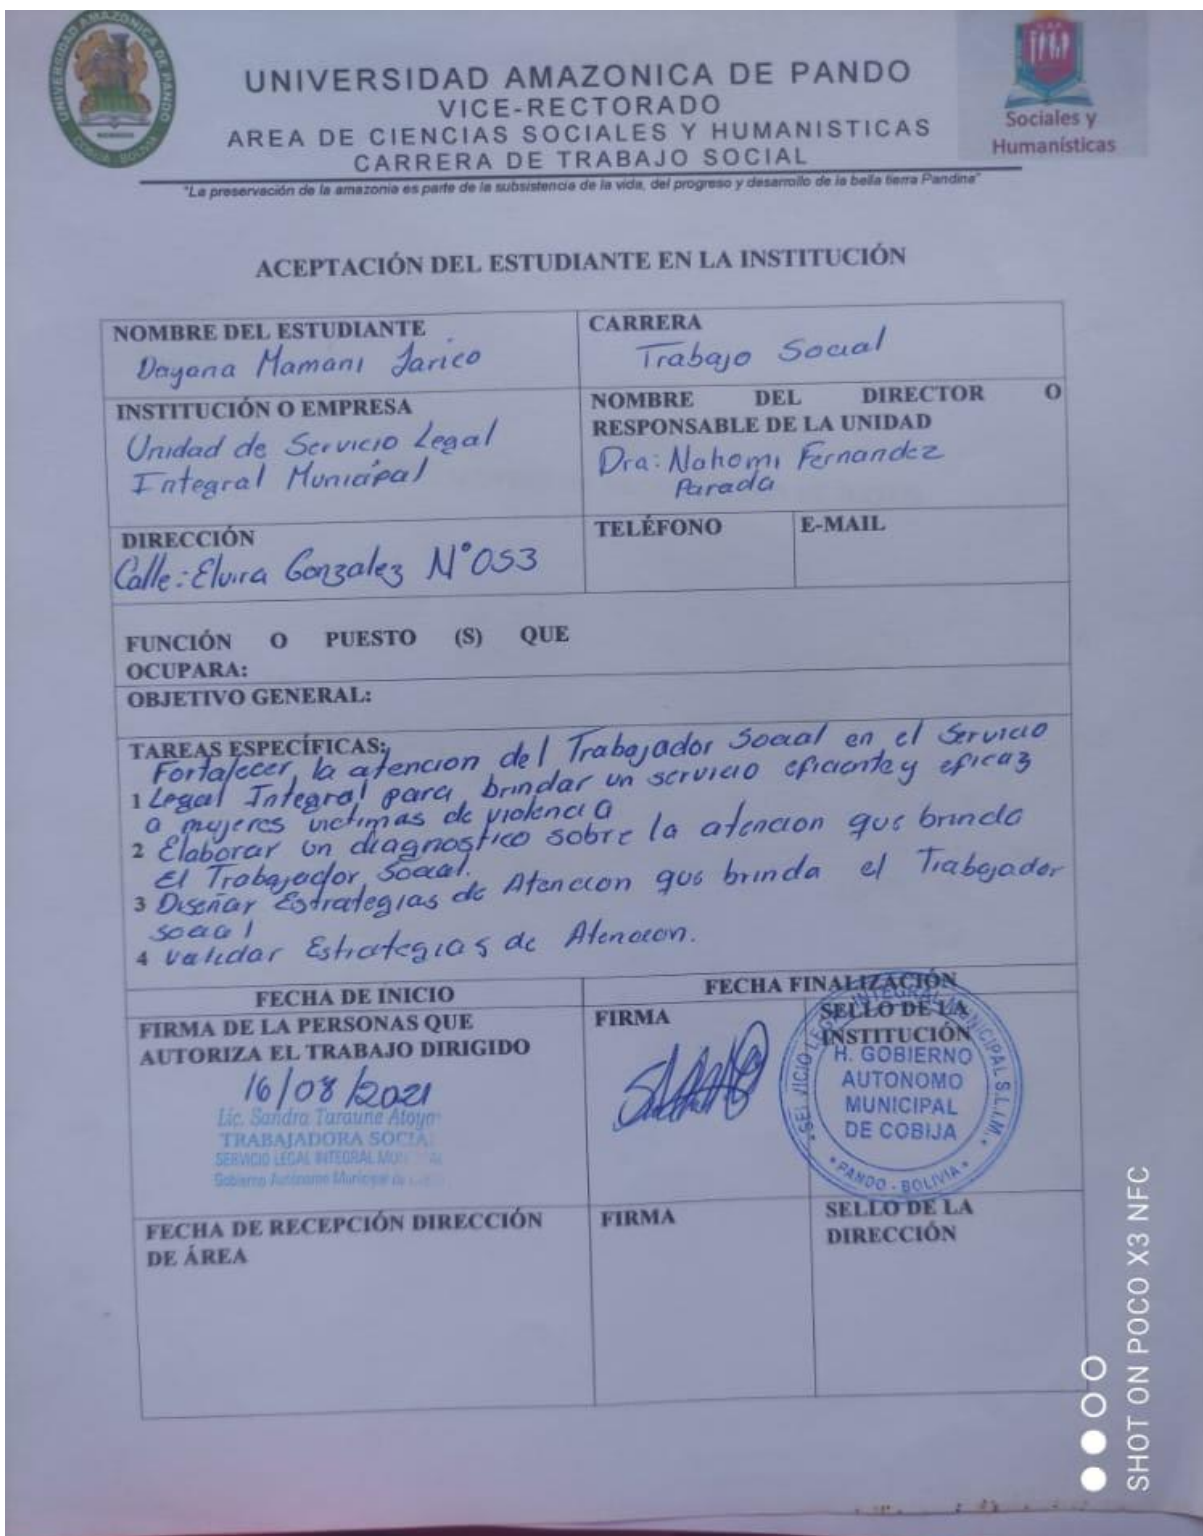 UNIVERSIDAD AMAZONICA DE PANDO
COBIJA - BOLIVIA
Sociales y
Humanísticas
UNIVERSIDAD AMAZONICA DE PANDO
VICE-RECTORADO
AREA DE CIENCIAS SOCIALES Y HUMANISTICAS
CARRERA DE TRABAJO SOCIAL
"La preservación de la amazonia es parte de la subsistencia de la vida, del progreso y desarrollo de la bella tierra Pandina"
ACEPTACIÓN DEL ESTUDIANTE EN LA INSTITUCIÓN
NOMBRE DEL ESTUDIANTE
Dayana Mamani Jarico
CARRERA
Trabajo Social
INSTITUCIÓN O EMPRESA
Unidad de Servicio Legal
Integral Municipal
NOMBRE DEL DIRECTOR O
RESPONSABLE DE LA UNIDAD
Dra: Nahomi Fernandez
Parada
DIRECCIÓN
Calle: Elvira Gonzalez N°053
TELÉFONO
E-MAIL
FUNCIÓN O PUESTO (S) QUE
OCUPARA:
OBJETIVO GENERAL:
TAREAS ESPECÍFICAS:
Fortalecer la atencion del Trabajador Social en el Servicio
1 Legal Integral para brindar un servicio eficiente y eficaz
a mujeres victimas de violencia
2 Elaborar un diagnostico sobre la atencion que brinda
El Trabajador Social.
3 Diseñar Estrategias de Atencion que brinda el Trabajador
social
4 validar Estrategias de Atencion.
FECHA DE INICIO
FECHA FINALIZACIÓN
FIRMA DE LA PERSONAS QUE
AUTORIZA EL TRABAJO DIRIGIDO
16/08/2021
Lic. Sandra Taraune
TRABAJADORA SOCIA
SERVICIO LEGAL INTEGRAL
Gobierno Autónomo Municipal
FIRMA
SELLO DE LA
INSTITUCIÓN
SERVICIO LEGAL INTEGRAL MUNICIPAL S.L.I.M.
H. GOBIERNO
AUTONOMO
MUNICIPAL
DE COBIJA
PANDO - BOLIVIA
FECHA DE RECEPCIÓN DIRECCIÓN
DE ÁREA
FIRMA
SELLO DE LA
DIRECCIÓN
SHOT ON POCO X3 NFC